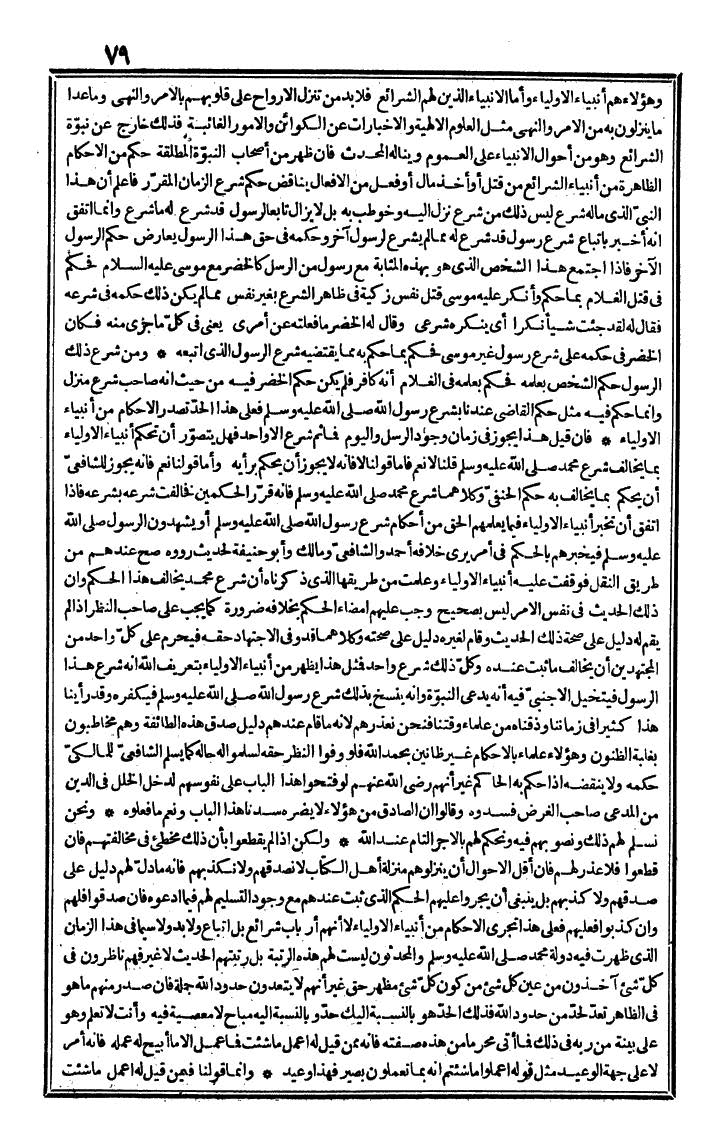 ٧٩
وهؤلاء هم أنبياء الاولياء وأما الانبياء الذين لهم الشرائع فلابد من تنزل الارواح على قلوبهم بالامر والنهى وماعدا
ما ينزلون به من الامر والنهى مثل العلوم الالهية والاخبارات عن الكوائن والامور الغائبة فذلك خارج عن نبوّة
الشرائع وهو من أحوال الانبياء على العموم ويناله المحدث فان ظهر من أصحاب النبوّة المطلقة حكم من الاحكام
الظاهرة من أنبياء الشرائع من قتل أو أخذ مال أو فعل من الافعال يناقض حكم شرع الزمان المقرّر فاعلم أن هذا
النبىّ الذى ماله شرع ليس ذلك من شرع نزل اليه وخوطب به بل لايزال تابعا لرسول قد شرع له ماشرع وانما اتفق
انه أخبر باتباع شرع رسول قد شرع له مالم يشرع لرسول آخر وحكمه فى حق هذا الرسول يعارض حكم الرسول
الآخر فاذا اجتمع هذا الشخص الذى هو بهذه المثابة مع رسول من الرسل كالخضر مع موسى عليه السلام فحكم
فى قتل الغلام بما حكم وأنكر عليه موسى قتل نفس زكية فى ظاهر الشرع بغير نفس مما لم يكن ذلك حكمه فى شرعه
فقال له لقد جئت شيأ نكرا أى ينكره شرعى وقال له الخضر ما فعلته عن أمرى يعنى فى كلّ ماجرى منه فكان
الخضر فى حكمه على شرع رسول غير موسى فحكم بما حكم به مما يقتضيه شرع الرسول الذى اتبعه * ومن شرع ذلك
الرسول حكم الشخص بعلمه فحكم بعلمه فى الغلام أنه كافر فلم يكن حكم الخضر فيه من حيث انه صاحب شرع منزل
وانما حكم فيه مثل حكم القاضى عندنا بشرع رسول الله صلى الله عليه وسلم فعلى هذا الحدّ تصدر الاحكام من أنبياء
الاولياء * فان قيل هذا يجوز فى زمان وجود الرسل واليوم فماثم شرع الا واحد فهل يتصوّر أن تحكم أنبياء الاولياء
بما يخالف شرع محمد صلى الله عليه وسلم قلنا لا نعم فاما قولنا لا فانه لايجوز أن يحكم برأيه وأما قولنا نعم فانه يجوز للشافعىّ
أن يحكم بما يخالف به حكم الحنفىّ وكلاهما شرع محمد صلى الله عليه وسلم فانه قرّر الحكمين فخالفت شرعه بشرعه فاذا
اتفق أن تخبر أنبياء الاولياء فيما يعلمهم الحق من أحكام شرع رسول الله صلى الله عليه وسلم أو يشهدون الرسول صلى الله
عليه وسلم فيخبرهم بالحكم فى أمر يرى خلافه أحمد والشافعى ومالك وأبوحنيفة لحديث رووه صح عندهم من
طريق النقل فوقفت عليه أنبياء الاولياء وعلمت من طريقها الذى ذكرناه أن شرع محمد يخالف هذا الحكم وان
ذلك الحديث فى نفس الامر ليس بصحيح وجب عليهم امضاء الحكم بخلافه ضرورة كما يجب على صاحب النظر اذا لم
يقم له دليل على صحة ذلك الحديث وقام لغيره دليل على صحته وكلاهما قد وفى الاجتهاد حقه فيحرم على كلّ واحد من
المجتهدين أن يخالف ماثبت عنده وكلّ ذلك شرع واحد فمثل هذا يظهر من أنبياء الاولياء بتعريف الله انه شرع هذا
الرسول فيتخيل الاجنبىّ فيه أنه يدعى النبوّة وانه ينسخ بذلك شرع رسول الله صلى الله عليه وسلم فيكفره وقد رأينا
هذا كثيرا فى زماننا وذقناه من علماء وقتنا فنحن نعذرهم لانه ماقام عندهم دليل صدق هذه الطائفة وهم مخاطبون
بغلبة الظنون وهؤلاء علماء بالاحكام غير ظانين بحمد الله فلو وفوا النظر حقه لسلموا له حاله كما يسلم الشافعىّ للمالكىّ
حكمه ولا ينقضه اذا حكم به الحاكم غير أنهم رضى الله عنهم لو فتحوا هذا الباب على نفوسهم لدخل الخلل فى الدين
من المدعى صاحب الغرض فسدوه وقالوا ان الصادق من هؤلاء لايضره سدنا هذا الباب ونعم مافعلوه * ونحن
نسلم لهم ذلك ونصوبهم فيه ونحكم لهم بالاجر التام عند الله * ولكن اذا لم يقطعوا بأن ذلك مخطئ فى مخالفتهم فان
قطعوا فلا عذر لهم فان أقل الاحوال أن ينزلوهم منزلة أهل الكتاب لانصدقهم ولانكذبهم فانه مادلّ لهم دليل على
صدقهم ولا كذبهم بل ينبغى أن يجروا عليهم الحكم الذى ثبت عندهم مع وجود التسليم لهم فيما ادعوه فان صدقوا فلهم
وان كذبوا فعليهم فعلى هذا تجرى الاحكام من أنبياء الاولياء لا أنهم أرباب شرائع بل اتباع ولابد ولاسيما فى هذا الزمان
الذى ظهرت فيه دولة محمد صلى الله عليه وسلم والمحدثون ليست لهم هذه الرتبة بل رتبتهم الحديث لاغير فهم ناظرون فى
كلّ شئ آخذون من عين كل شئ من كون كلّ شئ مظهر حق غير أنهم لايتعدون حدود الله جلة فان صدر منهم ماهو
فى الظاهر تعدّ لحدّ من حدود الله فذلك الحدّ هو بالنسبة اليك حدّ وبالنسبة اليه مباح لا معصية فيه وأنت لاتعلم وهو
على بينة من ربه فى ذلك فما أتى محرما من هذه صفته فانه ممن قيل له اعمل ماشئت فما عمل الا ما أبيح له عمله فانه أمر
لا على جهة الوعيد مثل قوله اعملوا ماشئتم انه بما تعملون بصير فهذا وعيد * وانما قولنا فيمن قيل له اعمل ماشئت